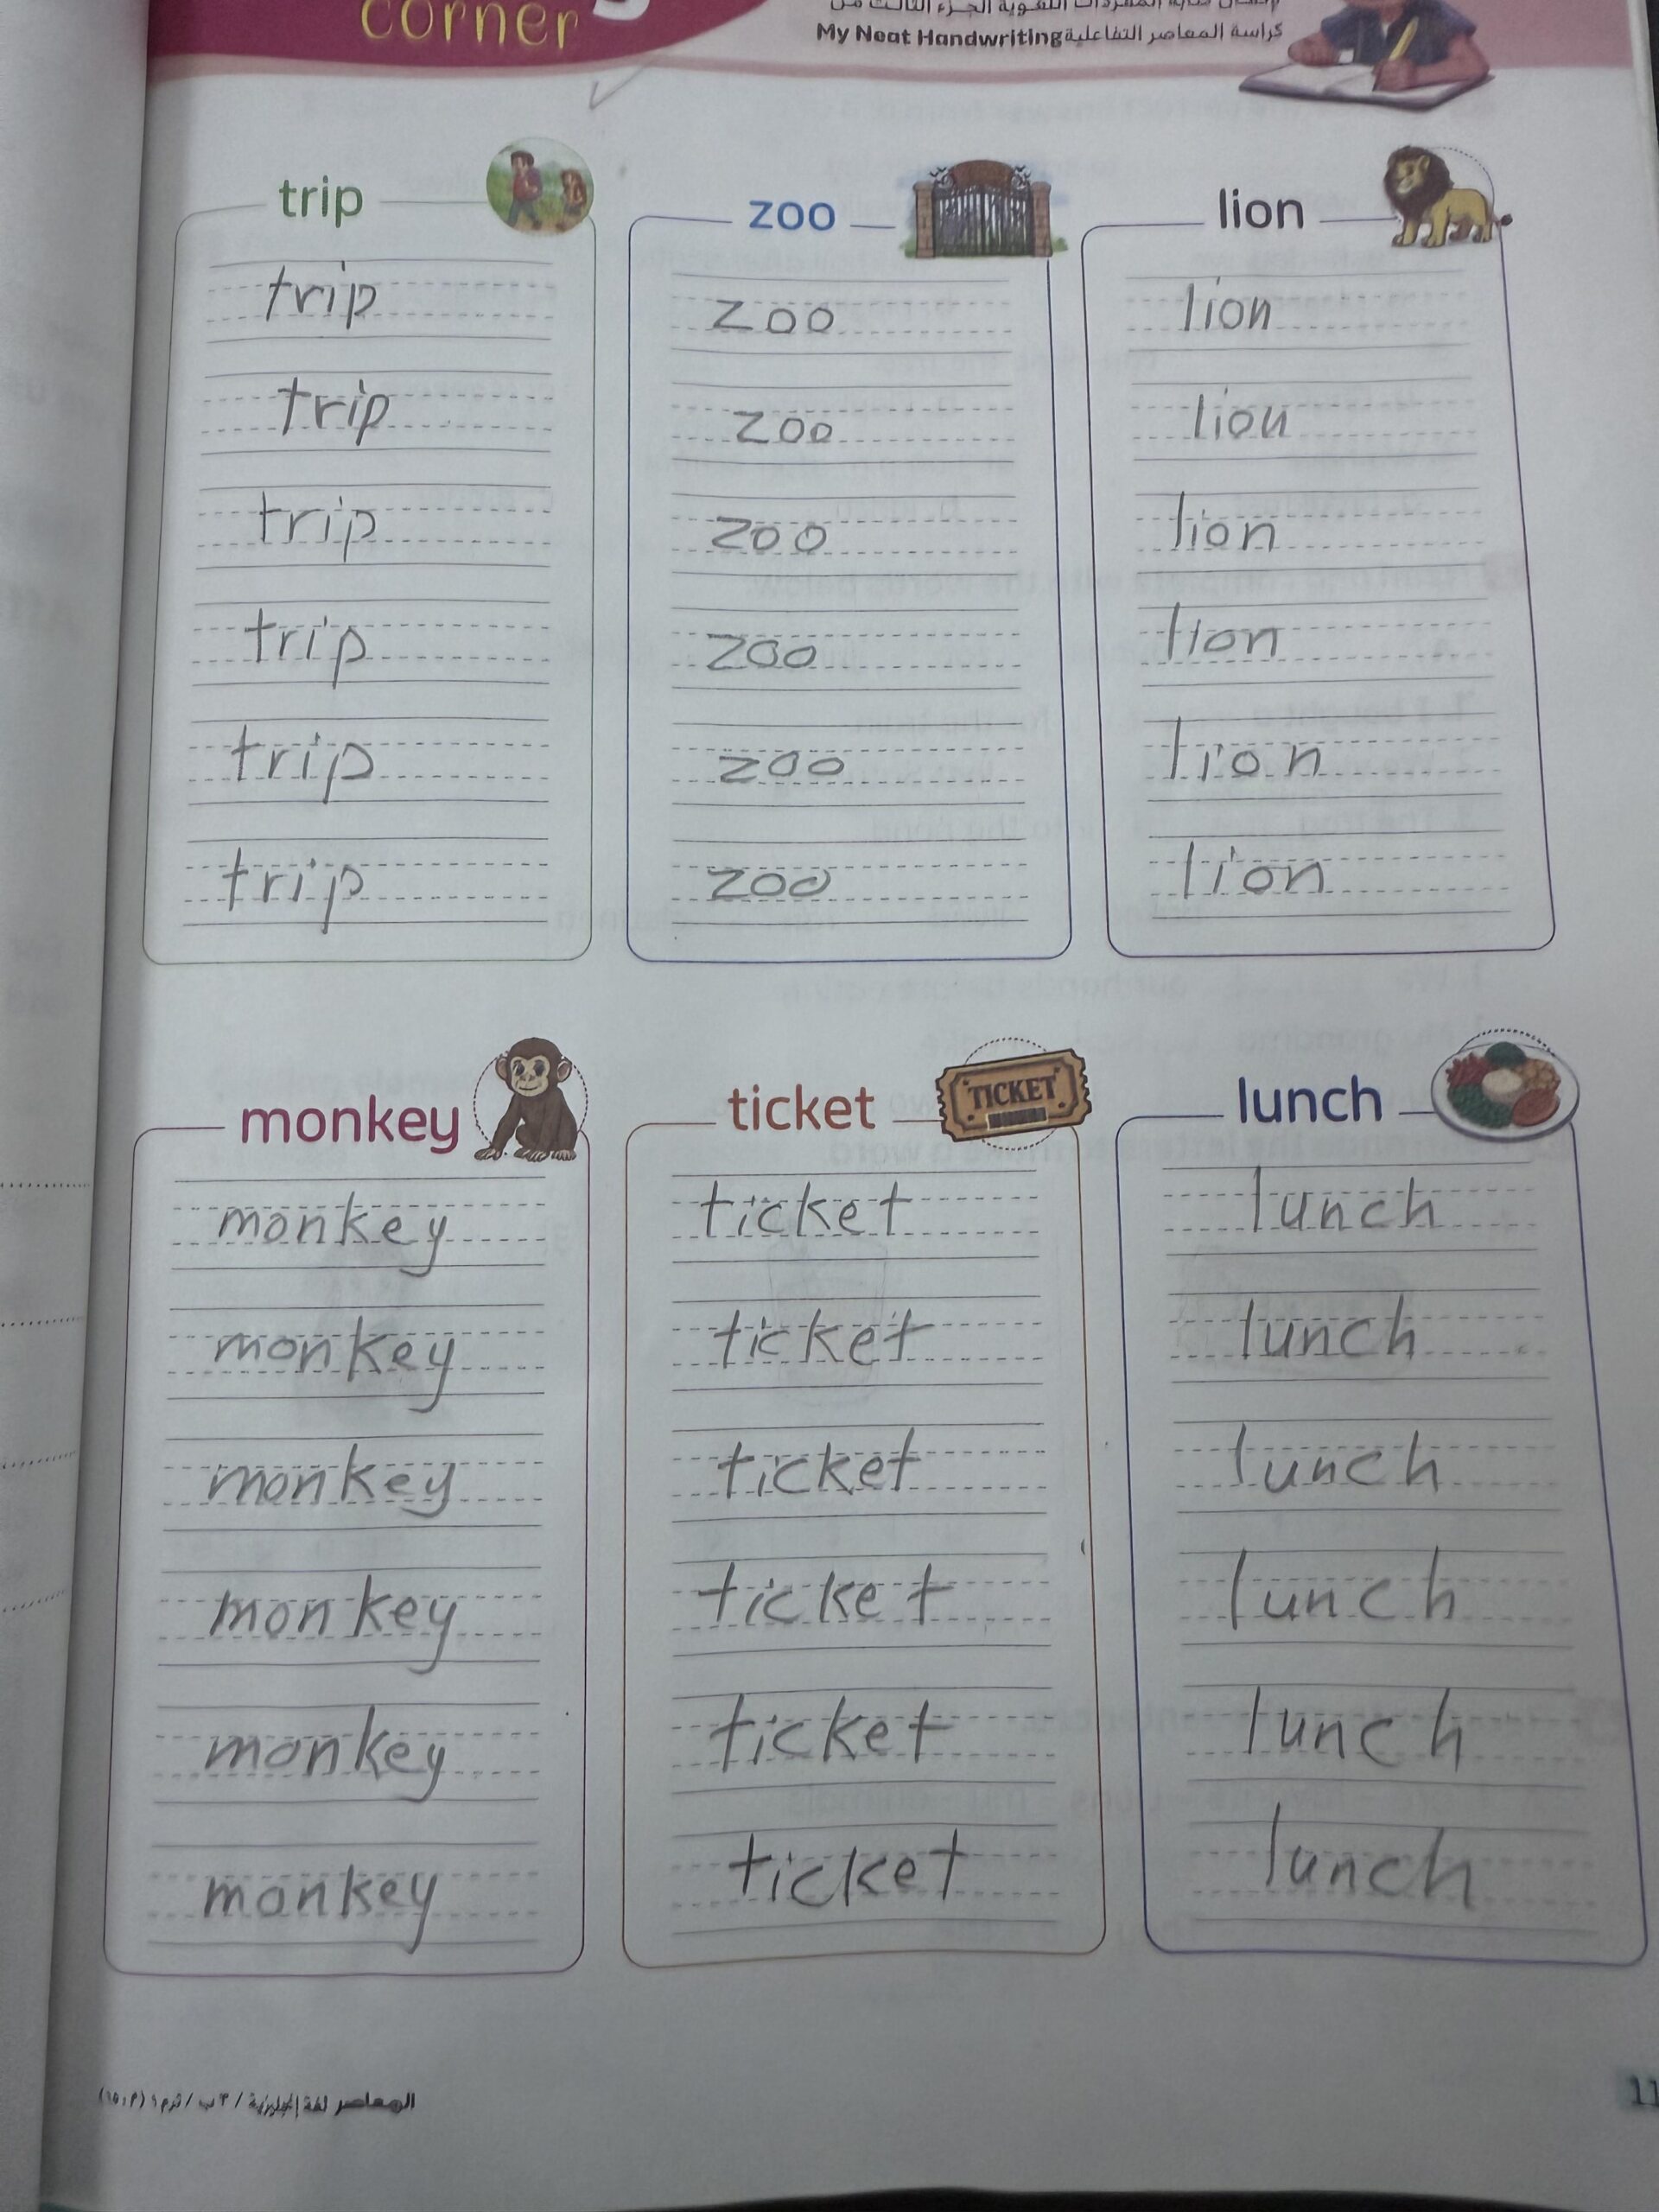 corner
كراسة المعاصر التفاعلية My Neat Handwriting
trip
trip
trip
trip
trip
trip
trip
zoo
zoo
zoo
zoo
zoo
zoo
zoo
lion
lion
lion
lion
lion
lion
lion
monkey
monkey
monkey
monkey
monkey
monkey
monkey
ticket
TICKET
ticket
ticket
ticket
ticket
ticket
ticket
lunch
lunch
lunch
lunch
lunch
lunch
lunch
المعاصر لغة إنجليزية / ٣ ب / ترم ١
11